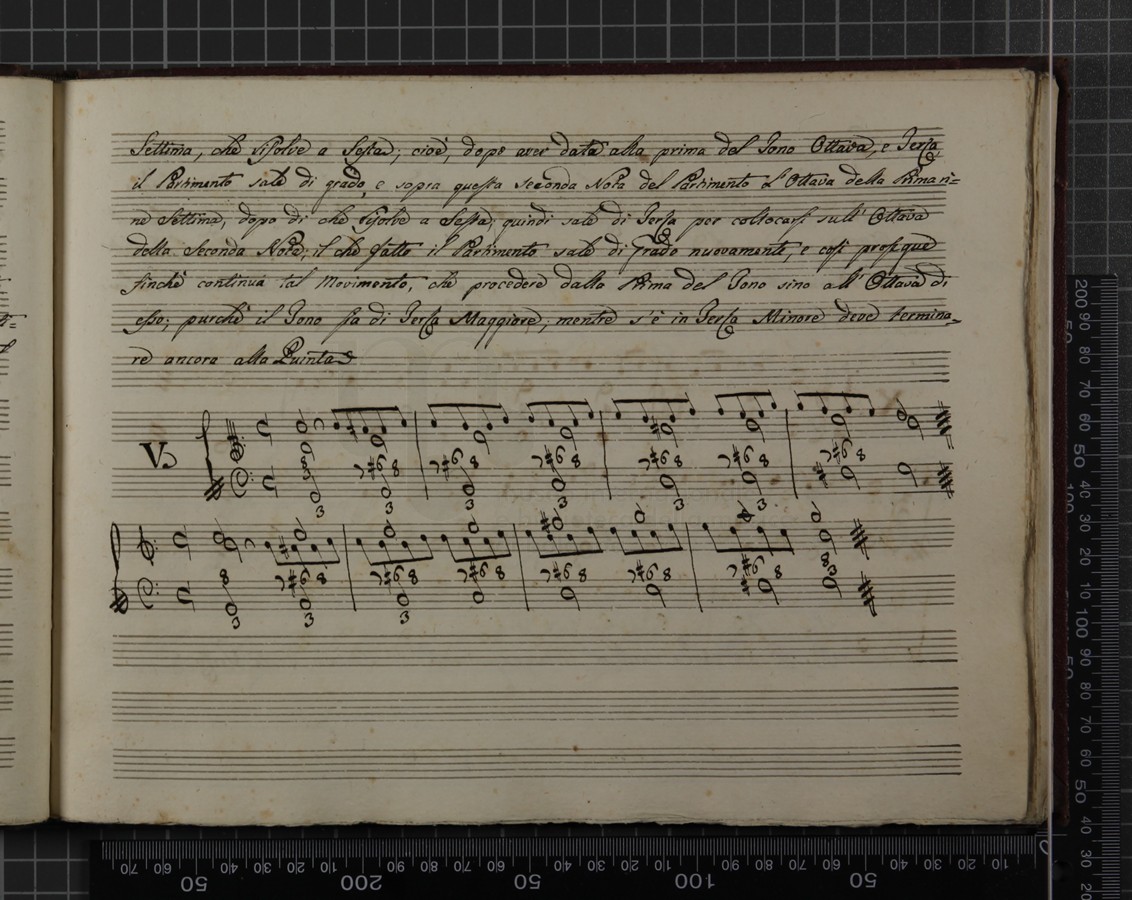 Settima, che risolve a Sesta; cioè, dopo aver data alla prima del Tono Ottava, e Terza
il Partimento sale di grado, e sopra questa seconda Nota del Partimento l'Ottava della Prima ri=
ne Settima, dopo di che risolve a Sesta; quindi sale di Terza per collocarsi sull' Ottava
della Seconda Nota; il che fatto il Partimento sale di Grado nuovamente, e così prosegue
finchè continua tal Movimento, che procede dalla Prima del Tono sino all' Ottava di
esso; purchè il Tono sia di Terza Maggiore; mentre s'è in Terza Minore deve termina=
re ancora alla Quinta
V.